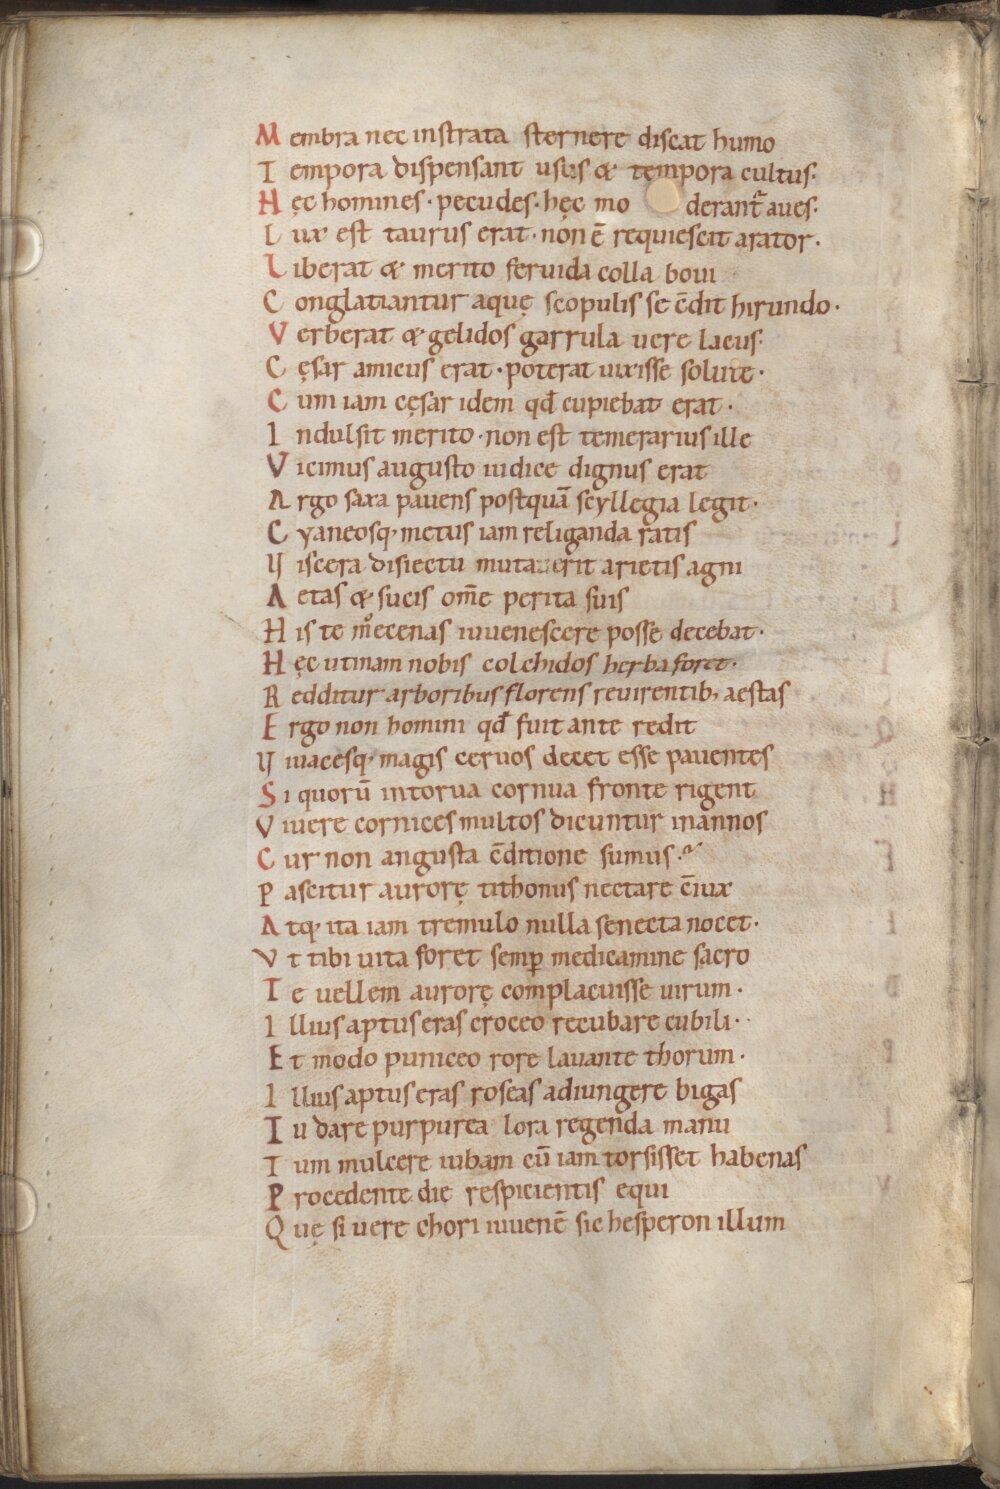 Membra nec instrata sternere discat humo
Tempora dispensant usus & tempora cultus.
Hęc homines. pecudes. hęc mo derant᷑ aues.
Lux est taurus erat. non ē requiescit arator.
Liberat & merito feruida colla boui
Conglatiantur aquę scopulis se c̄dit hirundo.
Verberat & gelidos garrula uere lacus.
Cęsar amicus erat. poterat uixisse solute.
Cum iam cęsar idem qđ cupiebat erat.
Indulsit merito. non est temerarius ille
Vicimus augusto iudice dignus erat
Argo saxa pauens postquā scyllegia legit.
Cyaneosq. metus iam religanda ratis
Viscera disiectu mutauerit arietis agni
Aetas & sucis om̄e perita suis
His te mͦecenas iuuenescere posse decebat.
Hęc utinam nobis colchidos herba foret.
Redditur arboribus florens reuirentib; aestas
Ergo non homini qđ fuit ante redit
Viuacesq. magis ceruos decet esse pauentes
Si quorū intorua cornua fronte rigent
Viuere cornices multos dicuntur in annos
Cur non angusta c̄ditione sumus.
Pascitur aurorę tithonus nectare c̄iux
Atq. ita iam tremulo nulla senecta nocet.
Vt tibi uita foret semꝑ medicamine sacro
Te uellem aurorę complacuisse uirum.
Illius aptus eras croceo recubare cubili.
Et modo puniceo rore lauante thorum.
Illius aptus eras roseas adiungere bigas
Tu dare purpurea lora regenda manu
Tum mulcere iubam cū iam torsisset habenas
Procedente die respicientis equi
Quę si uere chori iuuenē sic hesperon illum